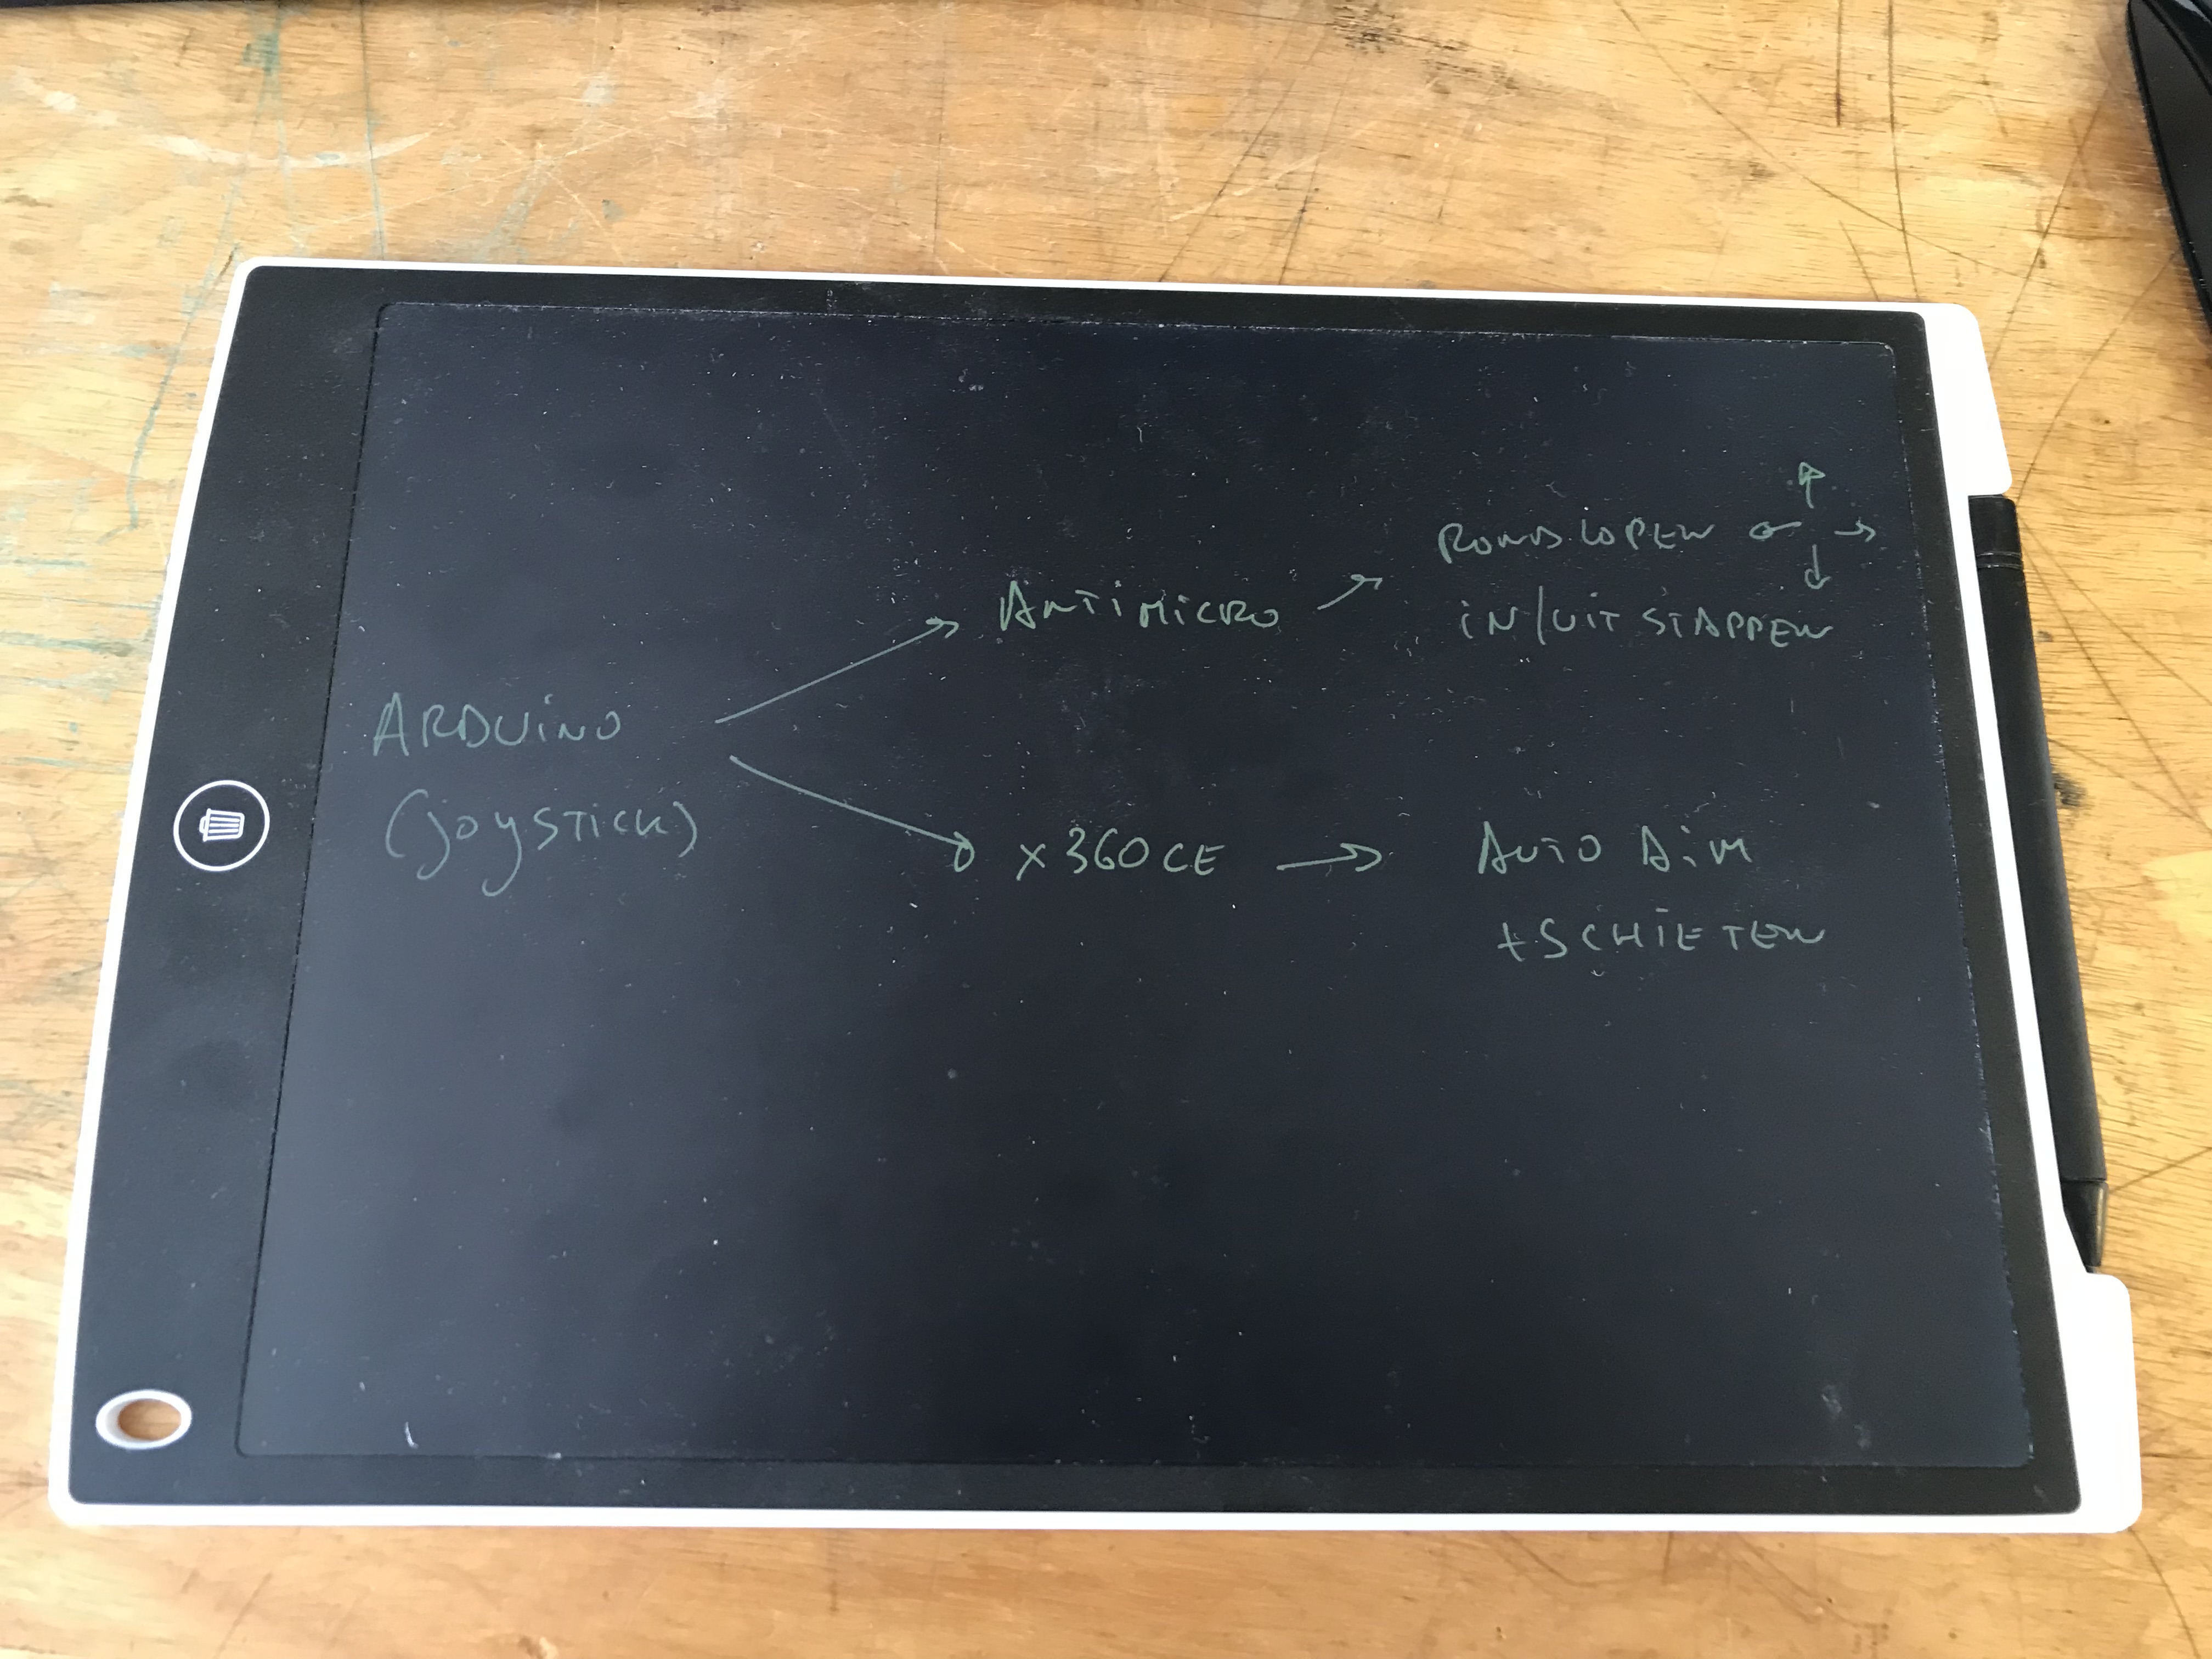 ARDUiNO
(joySTiCK)
ANTiMiCRO
RONDLOPEN
iN/UIT STAPPEN
X360CE
AUTO AiM
+SCHIETEN